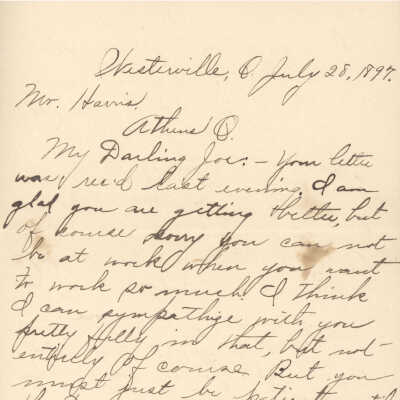 Westerville, O. July 28, 1897.
Mr. Harris,
Athens O.
My Darling Joe: – Your letter
was rec'd last evening. I am
glad you are getting better, but
of course sorry you can not
be at work when you want
to work so much. I think
I can sympathize with you
pretty fully in that, but not
entirely of course. But you
must just be